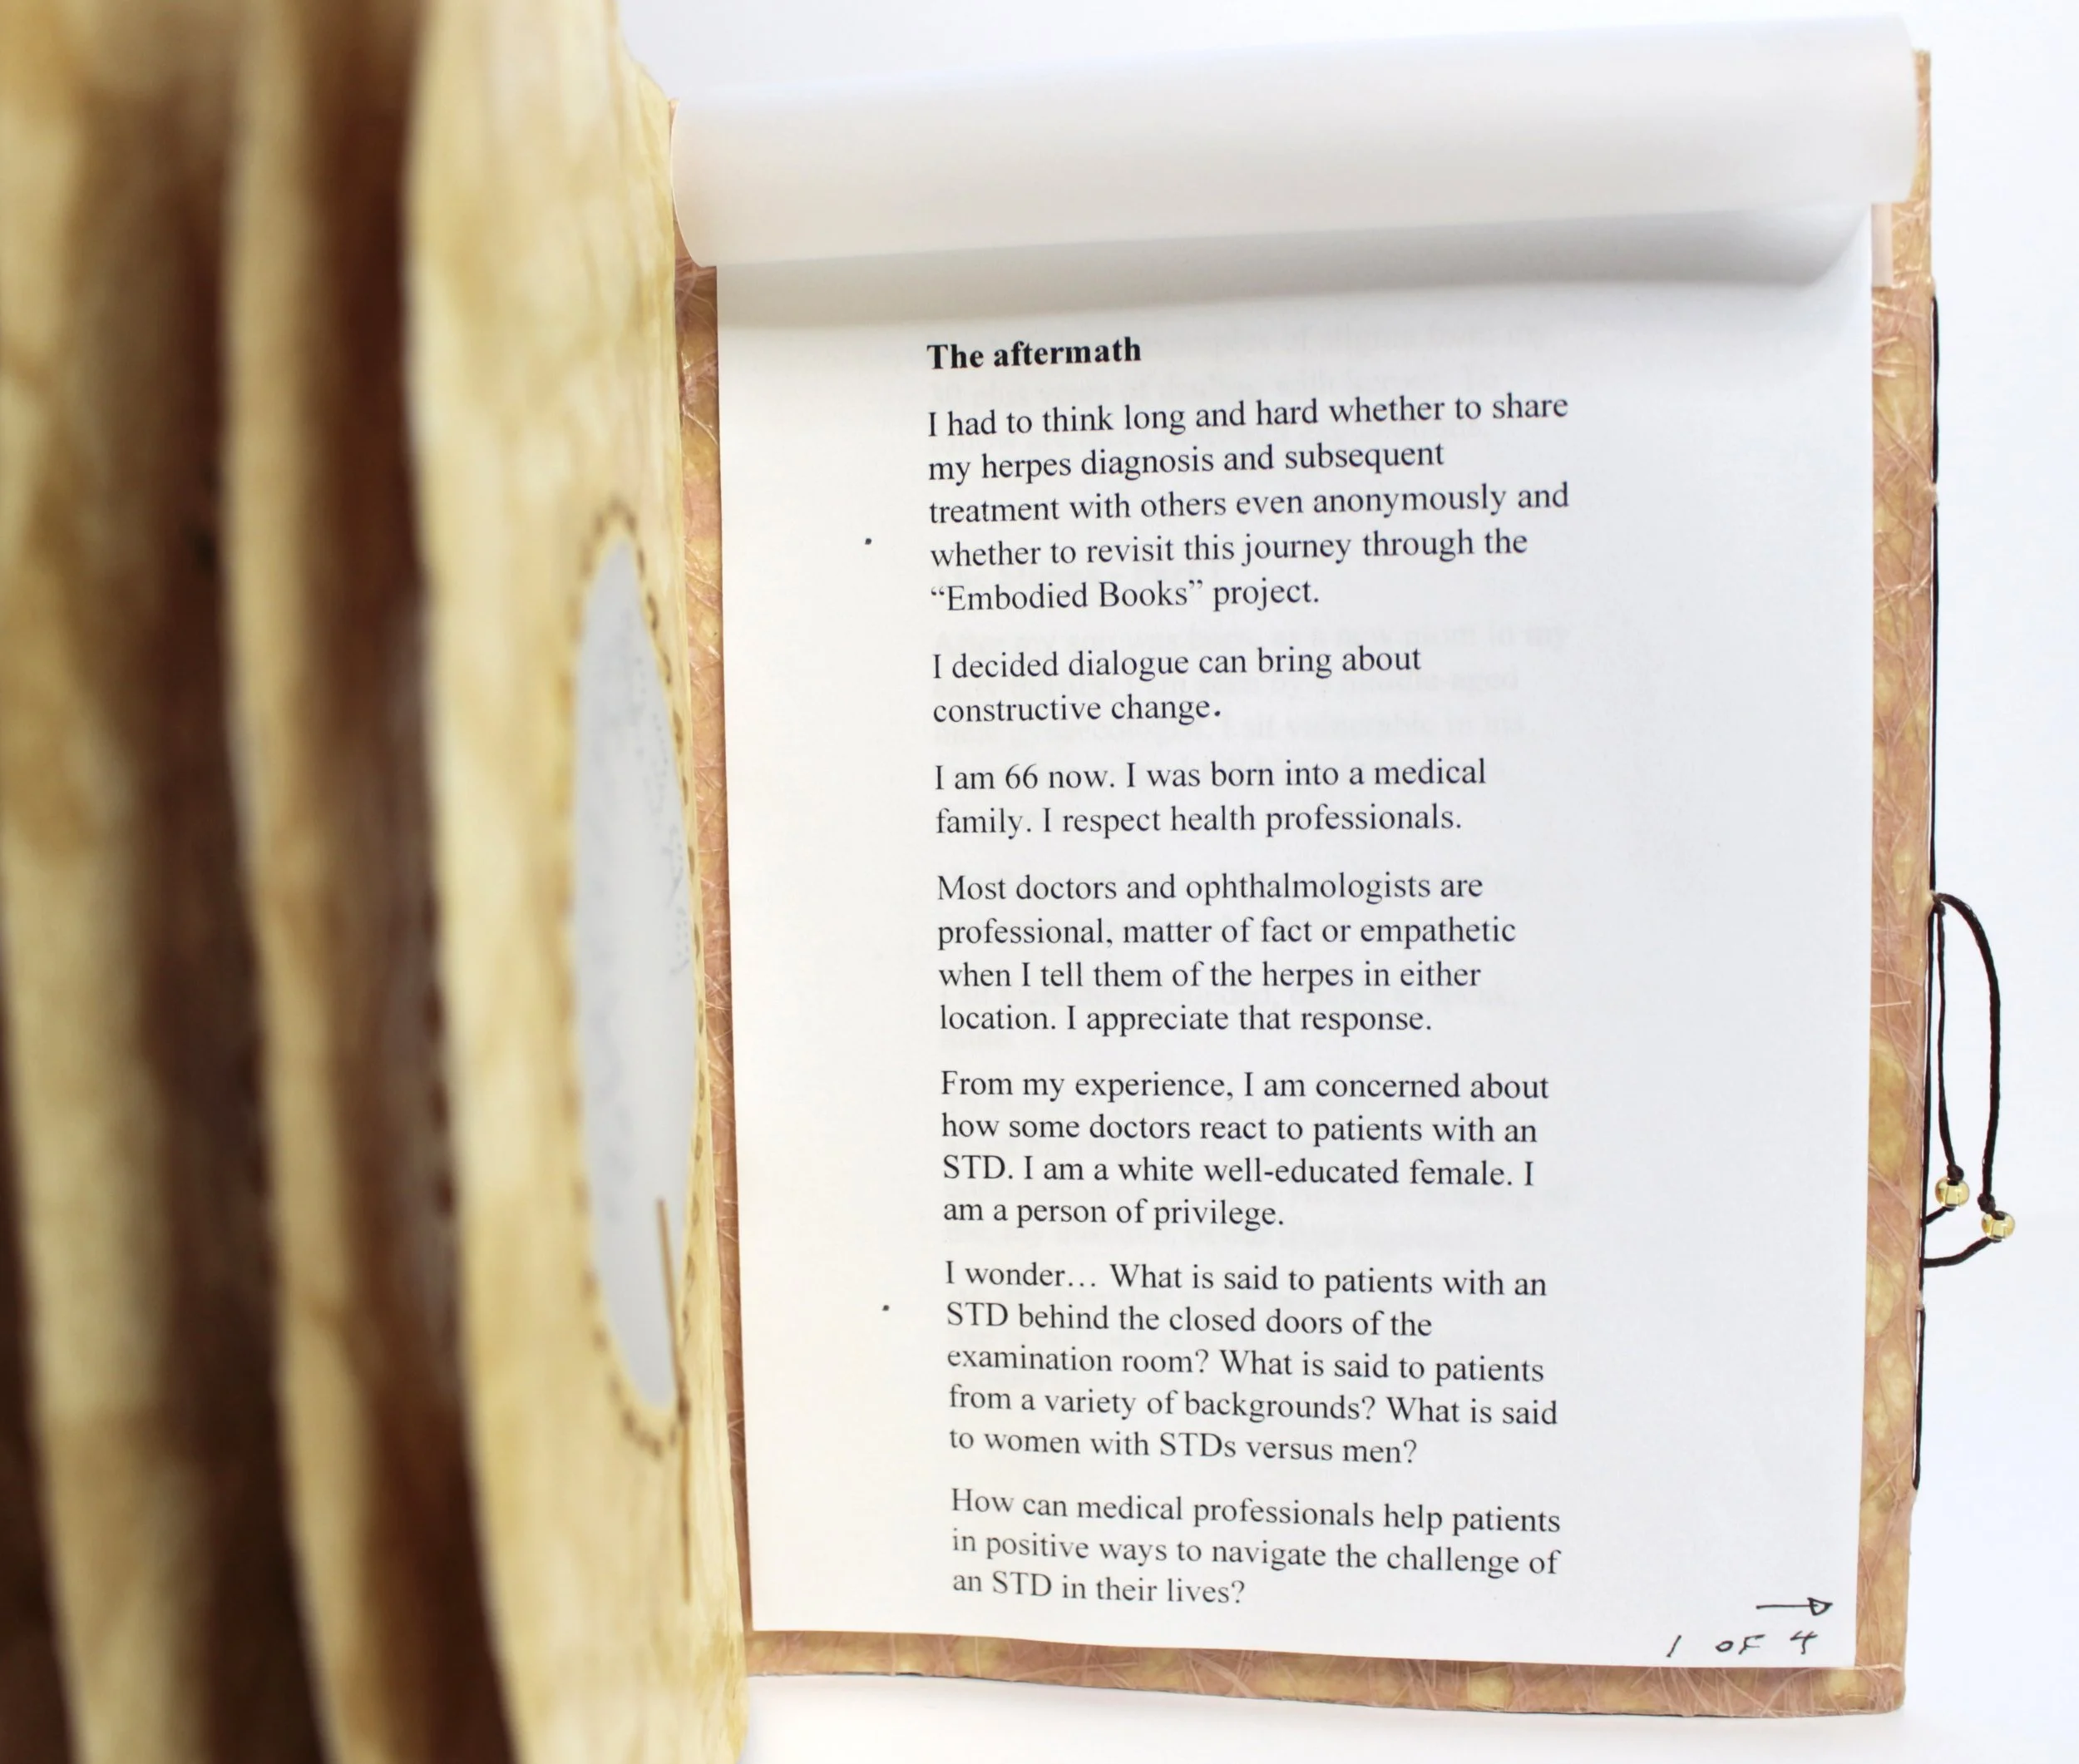 The aftermath
I had to think long and hard whether to share
my herpes diagnosis and subsequent
treatment with others even anonymously and
whether to revisit this journey through the
“Embodied Books” project.
I decided dialogue can bring about
constructive change.
I am 66 now. I was born into a medical
family. I respect health professionals.
Most doctors and ophthalmologists are
professional, matter of fact or empathetic
when I tell them of the herpes in either
location. I appreciate that response.
From my experience, I am concerned about
how some doctors react to patients with an
STD. I am a white well-educated female. I
am a person of privilege.
I wonder… What is said to patients with an
STD behind the closed doors of the
examination room? What is said to patients
from a variety of backgrounds? What is said
to women with STDs versus men?
How can medical professionals help patients
in positive ways to navigate the challenge of
an STD in their lives?
1 OF 4